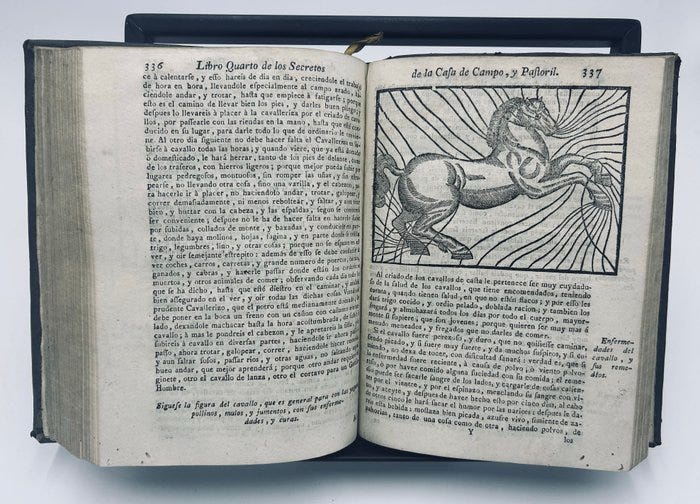 336 Libro Quarto de los Secretos
ce à calentarse, y esso hareis de dia en dia, creciendole el trabajo
de hora en hora, llevandole especialmente al campo arado, ha-
ciendole andar, y trotar, hasta que empiece à fatigarse; porque
esto es el camino de llevar bien los pies, y darles buen pliegue;
despues lo llevareis à placer à la cavalleriza por el criado de cava-
llos, por passearle con las riendas en la mano, hasta que esté con-
ducido en su lugar, para darle todo lo que de ordinario le convie-
ne. Al otro dia siguiente no debe hacer falta el Cavallerizo de su-
birse à cavallo todas las horas; y quando viere, que ya está domado,
ò domesticado, le hará herrar, tanto de los pies de delante, como
de los traseros, con hierros ligeros; porque mejor pueda sufrir
lugares pedregosos, montuosos, sin romper las uñas, y sin estro-
pearse, no llevando otra cosa, sino una varilla, y el cabezon, pa-
ra hacerle ir à placer, no haciendole andar, trotar, galopar,
correr demasiadamente, ni menos rebolear, y saltar, y con tam-
bien, y huttar con la cabeza, y las espaldas, segun le convenga
ser conveniente; despues no le ha de hacer falta en hacerle
por subidas, collados de monte, y baxadas, y conducirle en par-
te, donde haya molinos, hojas, fagina, y en parte donde se
trigo, legumbres, lino, y otras cosas; porque no se espante en
ver, y oir semejante estrepito: además de esso se debe
ver coches, carros, carretas, y grande numero de puercos,
ganados, y cabras, y hacerle passar donde están los
muertos, y otros animales de comer; observando cada dia lo
que se ha dicho, hasta que esté diestro en el caminar, y andar
bien assegurado en el ver, y oir todas las dichas cosas.
prudente Cavallerizo, que el potro está medianamente domado,
debe poner en la boca un freno con un cañon con
lado, dexandole machacar hasta la hora acostumbrada, de
cavallo; à mas le pondreis el cabezon, y le apretareis la
subireis à cavallo en diversas partes, haciendole ir ahora
passo, ahora trotar, galopear, correr, haciendole hacer
y aun saltar fosos, passar rios, y otras aguas, no
buen andar, que mejor aprenderá; porque otro andar requiere
ginete, otro el cavallo de lanza, otro el cortaro para un
Hombre.
Siguese la figura del cavallo, que es general para con las
pollinos, mulos, y jumentos, con sus enferme-
dades, y curas.
de la Casa de Campo, y Pastoril. 337
Al criado de los cavallos de casta le pertenece ser muy cuydado-
so de la salud de los cavallos, que tiene encomendados, teniendo
cuenta, quando tienen salud, en que no estén flacos; y por esso les
dará trigo cocido, y ordio pelado, doblada racion; y tambien los
fregará, y almohazará todos los dias por todo el cuerpo, mayor-
mente si supiere, que son jovenes; porque quieren ser muy mas à
menudo meneados, y fregados que no darles de comer.
Si el cavallo fuere perezoso, y duro, que no quisiesse caminar,
siendo picado, y si fuere muy fuerte, y da muchos suspiros, y si co-
miendo, no dexa de toser, con dificultad sanará: verdad es, que si
la enfermedad fuere reciente, à causa de polvo, ò viento polvo-
so, ò por haver comido alguna suciedad con su comida; el reme-
dio puede ser sacarle sangre de los lados, y cargarle de essas calien-
tes por el vientre, y por el espinazo, mezclando su sangre con vi-
no, y azeyte, y despues de haver hecho esto por cinco dias, al cabo
de otros cinco le hará sacar el humor por las narices: despues le da-
reis esta bebida: mostaza bien picada, azufre vivo, simiente de za-
nahorias, tanto de una cosa como de otra, haciendo polvos, de
Enferme-
dades del
cavallo, y
sus reme-
dios.
Y
los